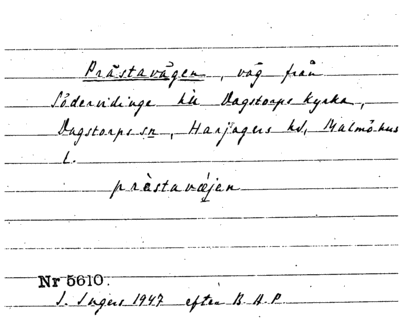 Prästavägen, väg från
Södervidinge till Dagstorps kyrka,
Dagstorps sn, Harjagers hd, Malmöhus
l.
prästavæjen
Nr 5610.
S. Ingers 1947 efter B.A.P.